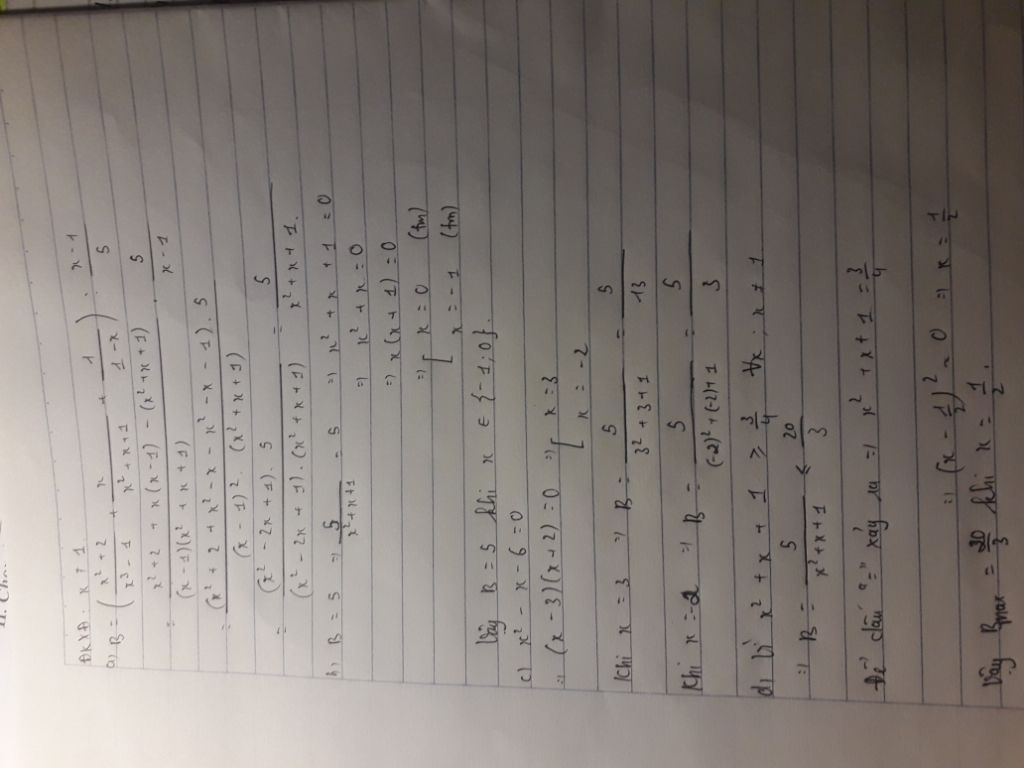 ĐKXĐ: x ≠ 1
a) B = ( (x² + 2)/(x³ - 1) + x/(x² + x + 1) + 1/(1 - x) ) : (x - 1)/5
= (x² + 2 + x(x - 1) - (x² + x + 1))/((x - 1)(x² + x + 1)) . 5/(x - 1)
= ((x² + 2 + x² - x - x² - x - 1) . 5)/((x - 1)² . (x² + x + 1))
= ((x² - 2x + 1) . 5)/((x² - 2x + 1) . (x² + x + 1)) = 5/(x² + x + 1).
b) B = 5 ⇒ 5/(x² + x + 1) = 5 ⇒ x² + x + 1 = 0
⇒ x² + x = 0
⇒ x(x + 1) = 0
⇒ [ x = 0 (tm)
x = -1 (tm)
Vậy B = 5 khi x ∈ {-1; 0}.
c) x² - x - 6 = 0
⇒ (x - 3)(x + 2) = 0 ⇒ [ x = 3
x = -2
Khi x = 3 ⇒ B = 5/(3² + 3 + 1) = 5/13
Khi x = -2 ⇒ B = 5/((-2)² + (-2) + 1) = 5/3
d) Vì x² + x + 1 ≥ 3/4 ∀x; x ≠ 1
⇒ B = 5/(x² + x + 1) ≤ 20/3
Để dấu "=" xảy ra ⇒ x² + x + 1 = 3/4
⇒ (x - 1/2)² = 0 ⇒ x = 1/2
Vậy Bmax = 20/3 khi x = 1/2.